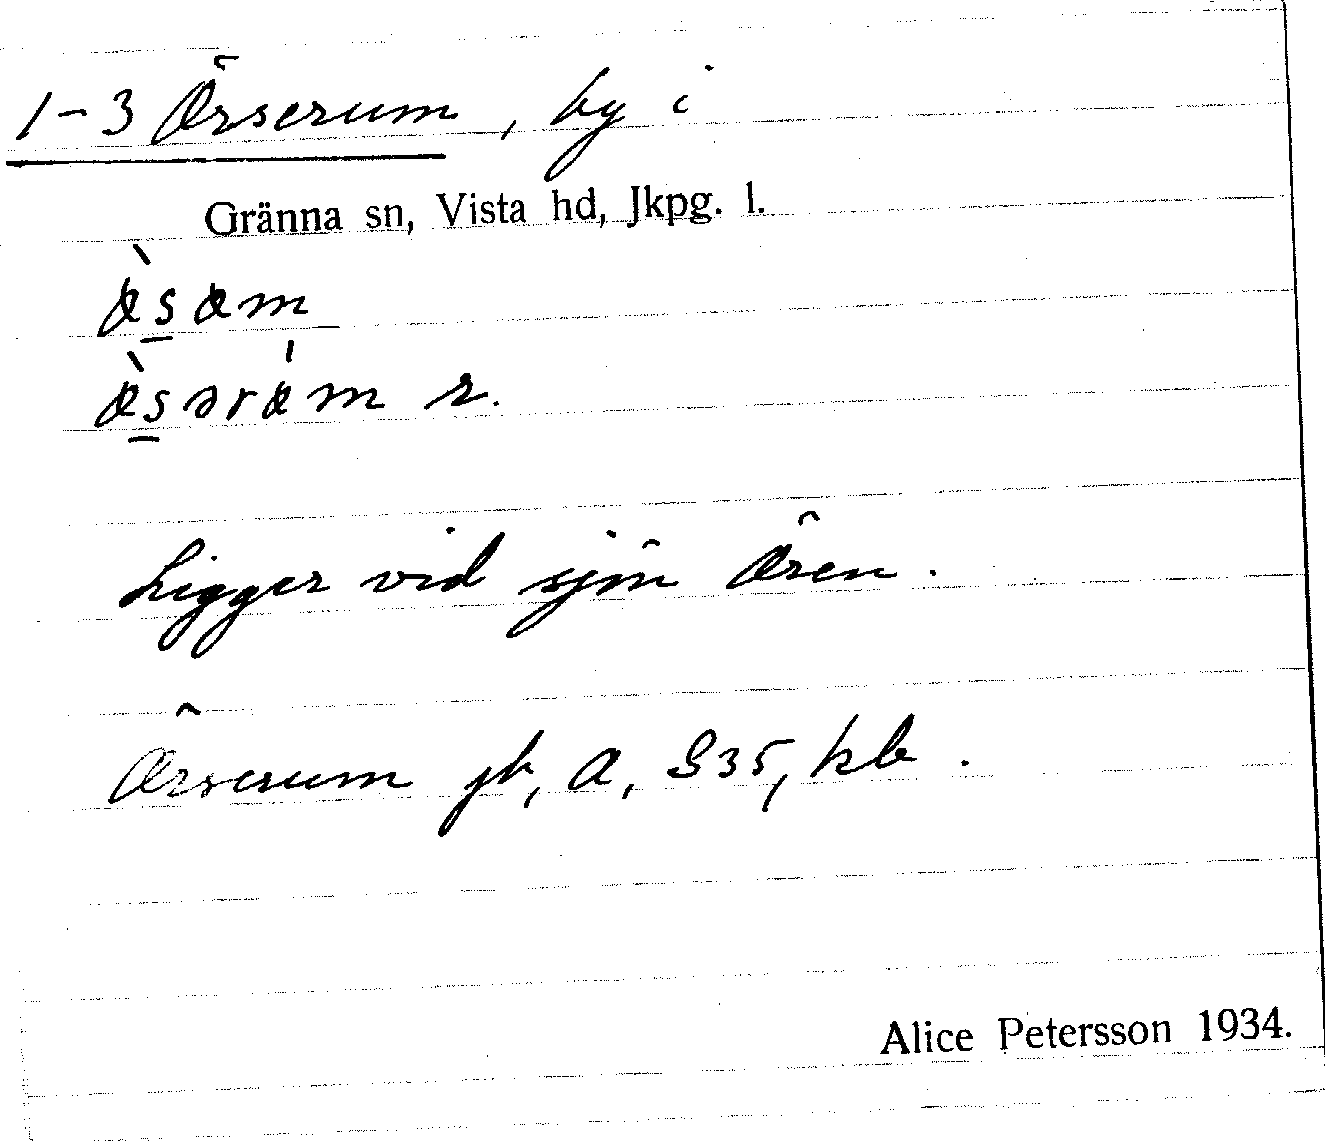 1-3 Örserum, by i
Gränna sn, Vista hd, Jkpg. l.
Ligger vid sjön Ören.
Örserum jb, A, S35, kb.
Alice Petersson 1934.